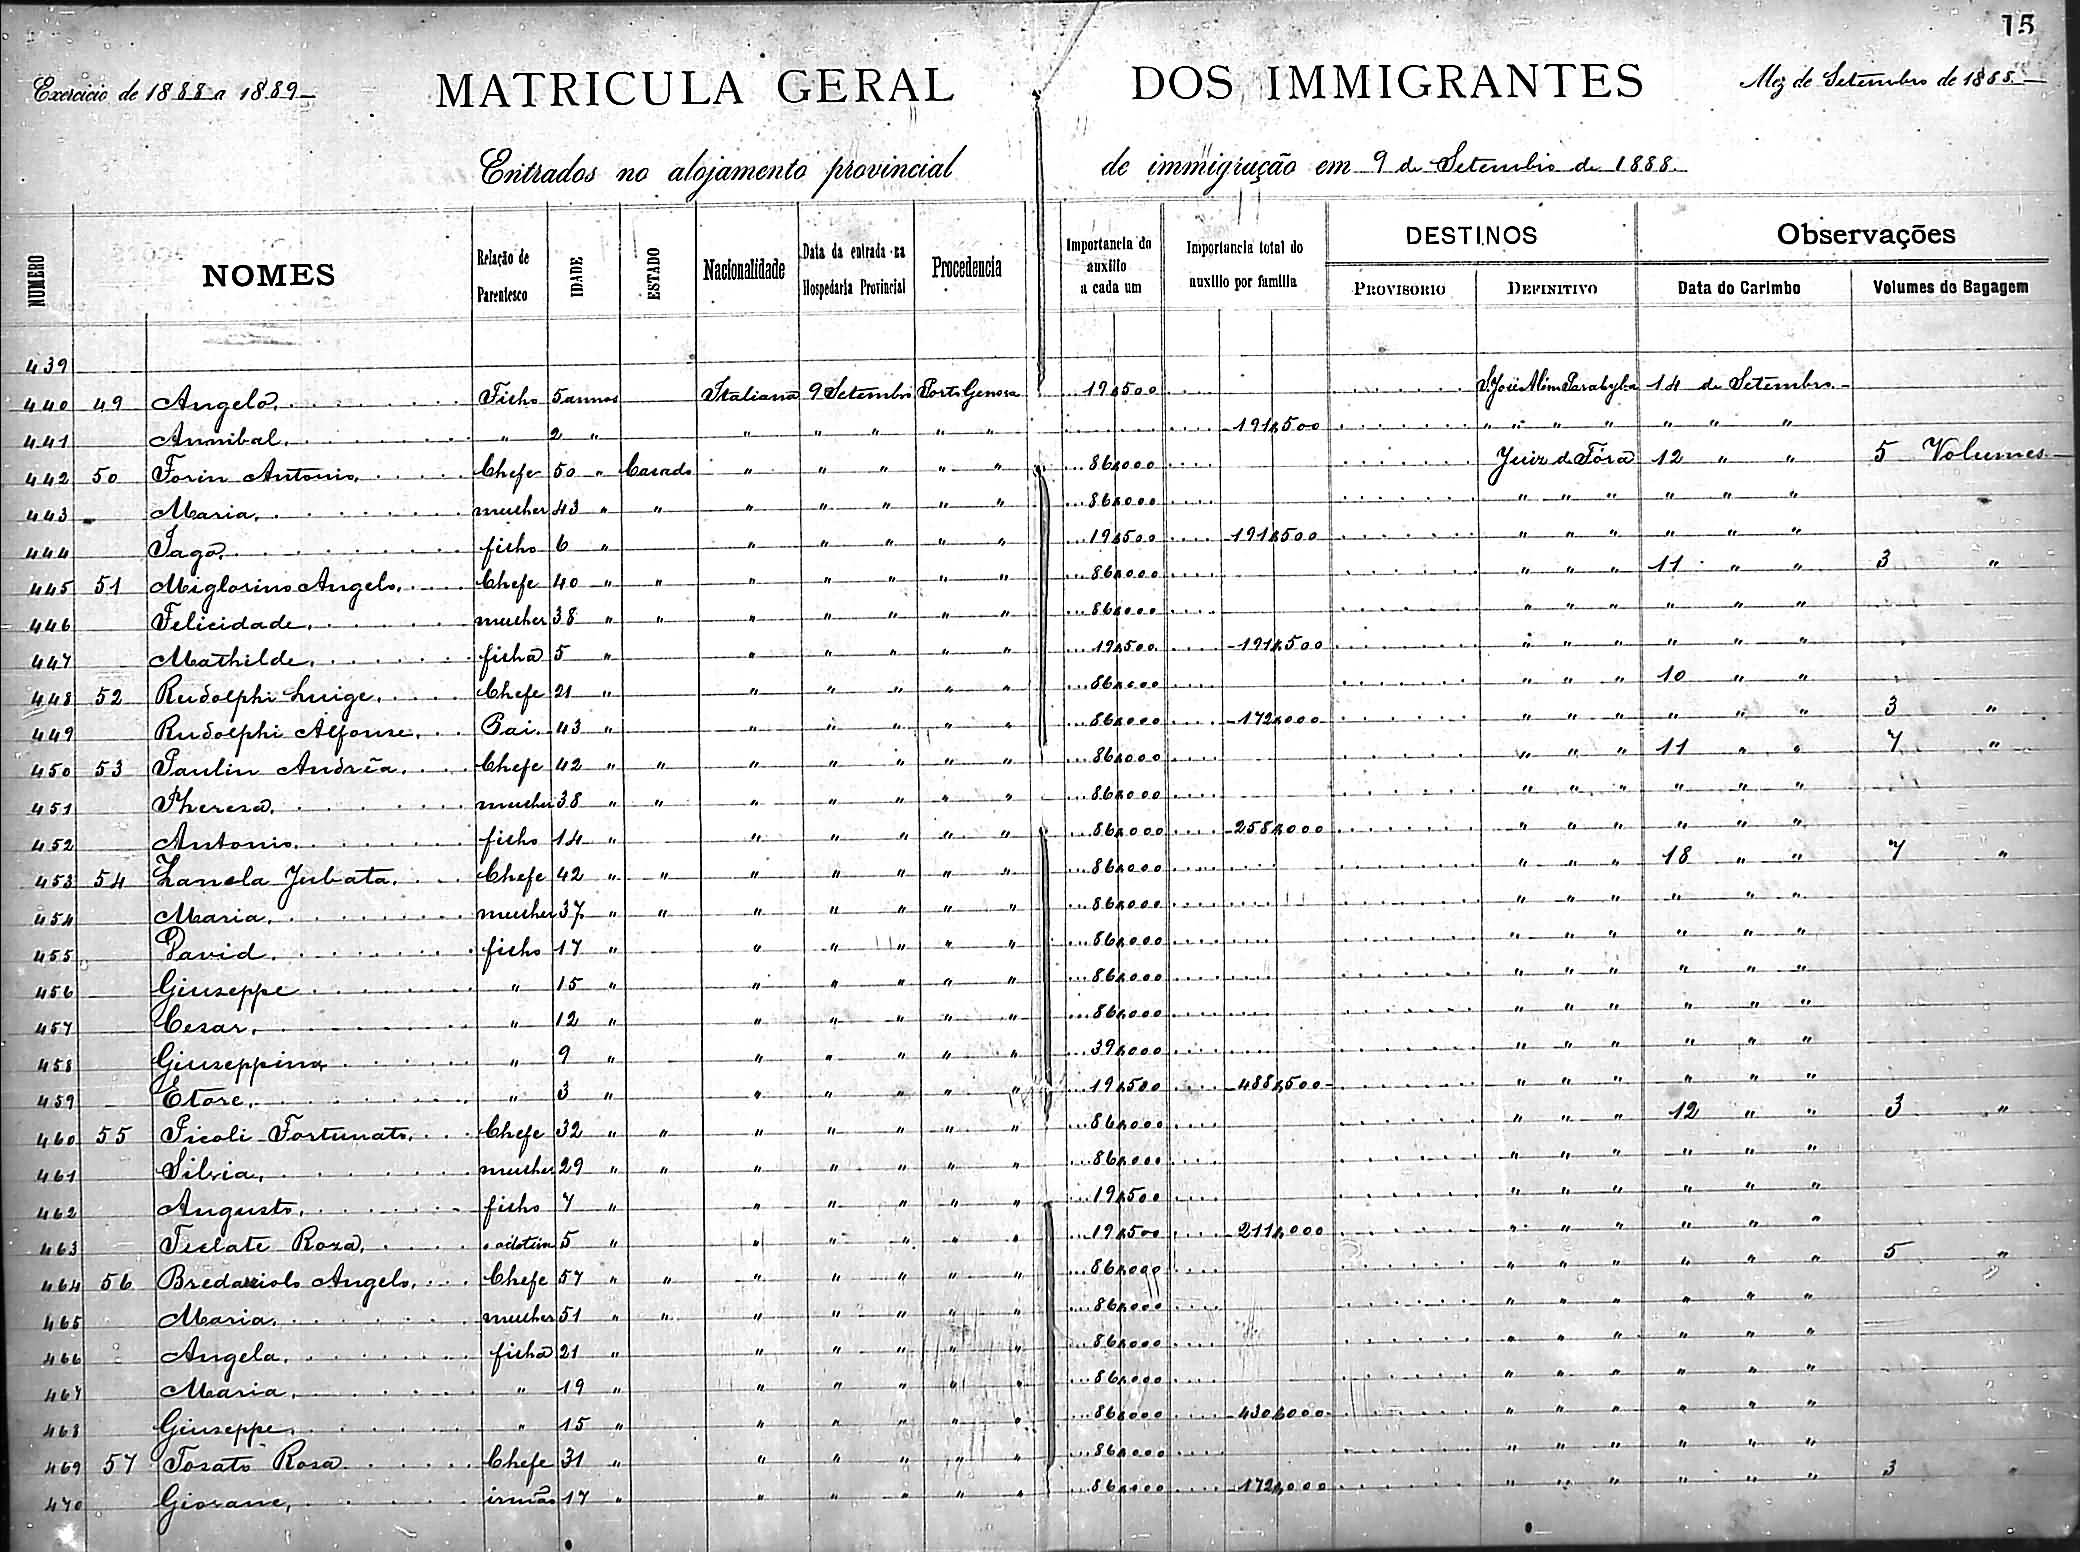 15
Exercicio de 1888 a 1889
MATRICULA GERAL DOS IMMIGRANTES
Mez de Setembro de 1888.
Entrados no alojamento provincial de immigração em 9 de Setembro de 1888.
NUMERO NOMES Relação de Parentesco IDADE ESTADO Nacionalidade Data da entrada na Hospedaria Provincial Procedencia Importancia do auxilio a cada um Importancia total do auxilio por familia DESTINOS PROVISORIO DEFINITIVO Observações Data do Carimbo Volumes de Bagagem
439
440 49 Angelo. Filho 5 annos Italiana 9 Setembro Porto Genova 19$500 S. José Além Parahyba 14 de Setembro
441 Annibal. " 2 " " " " " " 191$500 " " " " " " "
442 50 Forin Antonio. Chefe 50 " Casado " " " " " 86$000 Juiz de Fóra 12 " " 5 Volumes
443 Maria. mulher 43 " " " " " " " 86$000 " " " " " "
444 Iago. filho 6 " " " " " " 19$500 191$500 " " " " " "
445 51 Miglorino Angelo. Chefe 40 " " " " " " " 86$000 " " " 11 " " 3 "
446 Felicidade. mulher 38 " " " " " " " 86$000 " " " " " "
447 Mathilde. filha 5 " " " " " " 19$500 191$500 " " " " " "
448 52 Rudolphi Luige. Chefe 21 " " " " " " 86$000 " " " 10 " "
449 Rudolphi Alfonse. Pai 43 " " " " " " 86$000 172$000 " " " " " " 3 "
450 53 Paulin Andrêa. Chefe 42 " " " " " " " 86$000 " " " 11 " " 7 "
451 Theresa. mulher 38 " " " " " " " 86$000 " " " " " "
452 Antonio. filho 14 " " " " " " 86$000 258$000 " " " " " "
453 54 Zanela Jubata. Chefe 42 " " " " " " " 86$000 " " " 18 " " 7 "
454 Maria. mulher 37 " " " " " " " 86$000 " " " " " "
455 David. filho 17 " " " " " " 86$000 " " " " " "
456 Giuseppe " 15 " " " " " " 86$000 " " " " " "
457 Cesar. " 12 " " " " " " 86$000 " " " " " "
458 Giuseppina " 9 " " " " " " 39$000 " " " " " "
459 Etore. " 3 " " " " " " 19$500 488$500 " " " " " "
460 55 Picoli Fortunato. Chefe 32 " " " " " " " 86$000 " " " 12 " " 3 "
461 Silvia. mulher 29 " " " " " " " 86$000 " " " " " "
462 Augusto. filho 7 " " " " " " 19$500 " " " " " "
463 Rosa. 5 " " " " " " 19$500 211$000 " " " " " "
464 56 Angelo. Chefe 57 " " " " " " " 86$000 " " " " " " 5 "
465 Maria. mulher 51 " " " " " " " 86$000 " " " " " "
466 Angela. filha 21 " " " " " " 86$000 " " " " " "
467 Maria. " 19 " " " " " " 86$000 " " " " " "
468 Giuseppe. " 15 " " " " " " 86$000 430$000 " " " " " "
469 57 Tosato Rosa Chefe 31 " " " " " " 86$000 " " " " " "
470 Giovane, irmão 17 " " " " " " 86$000 172$000 " " " " " " 3 "